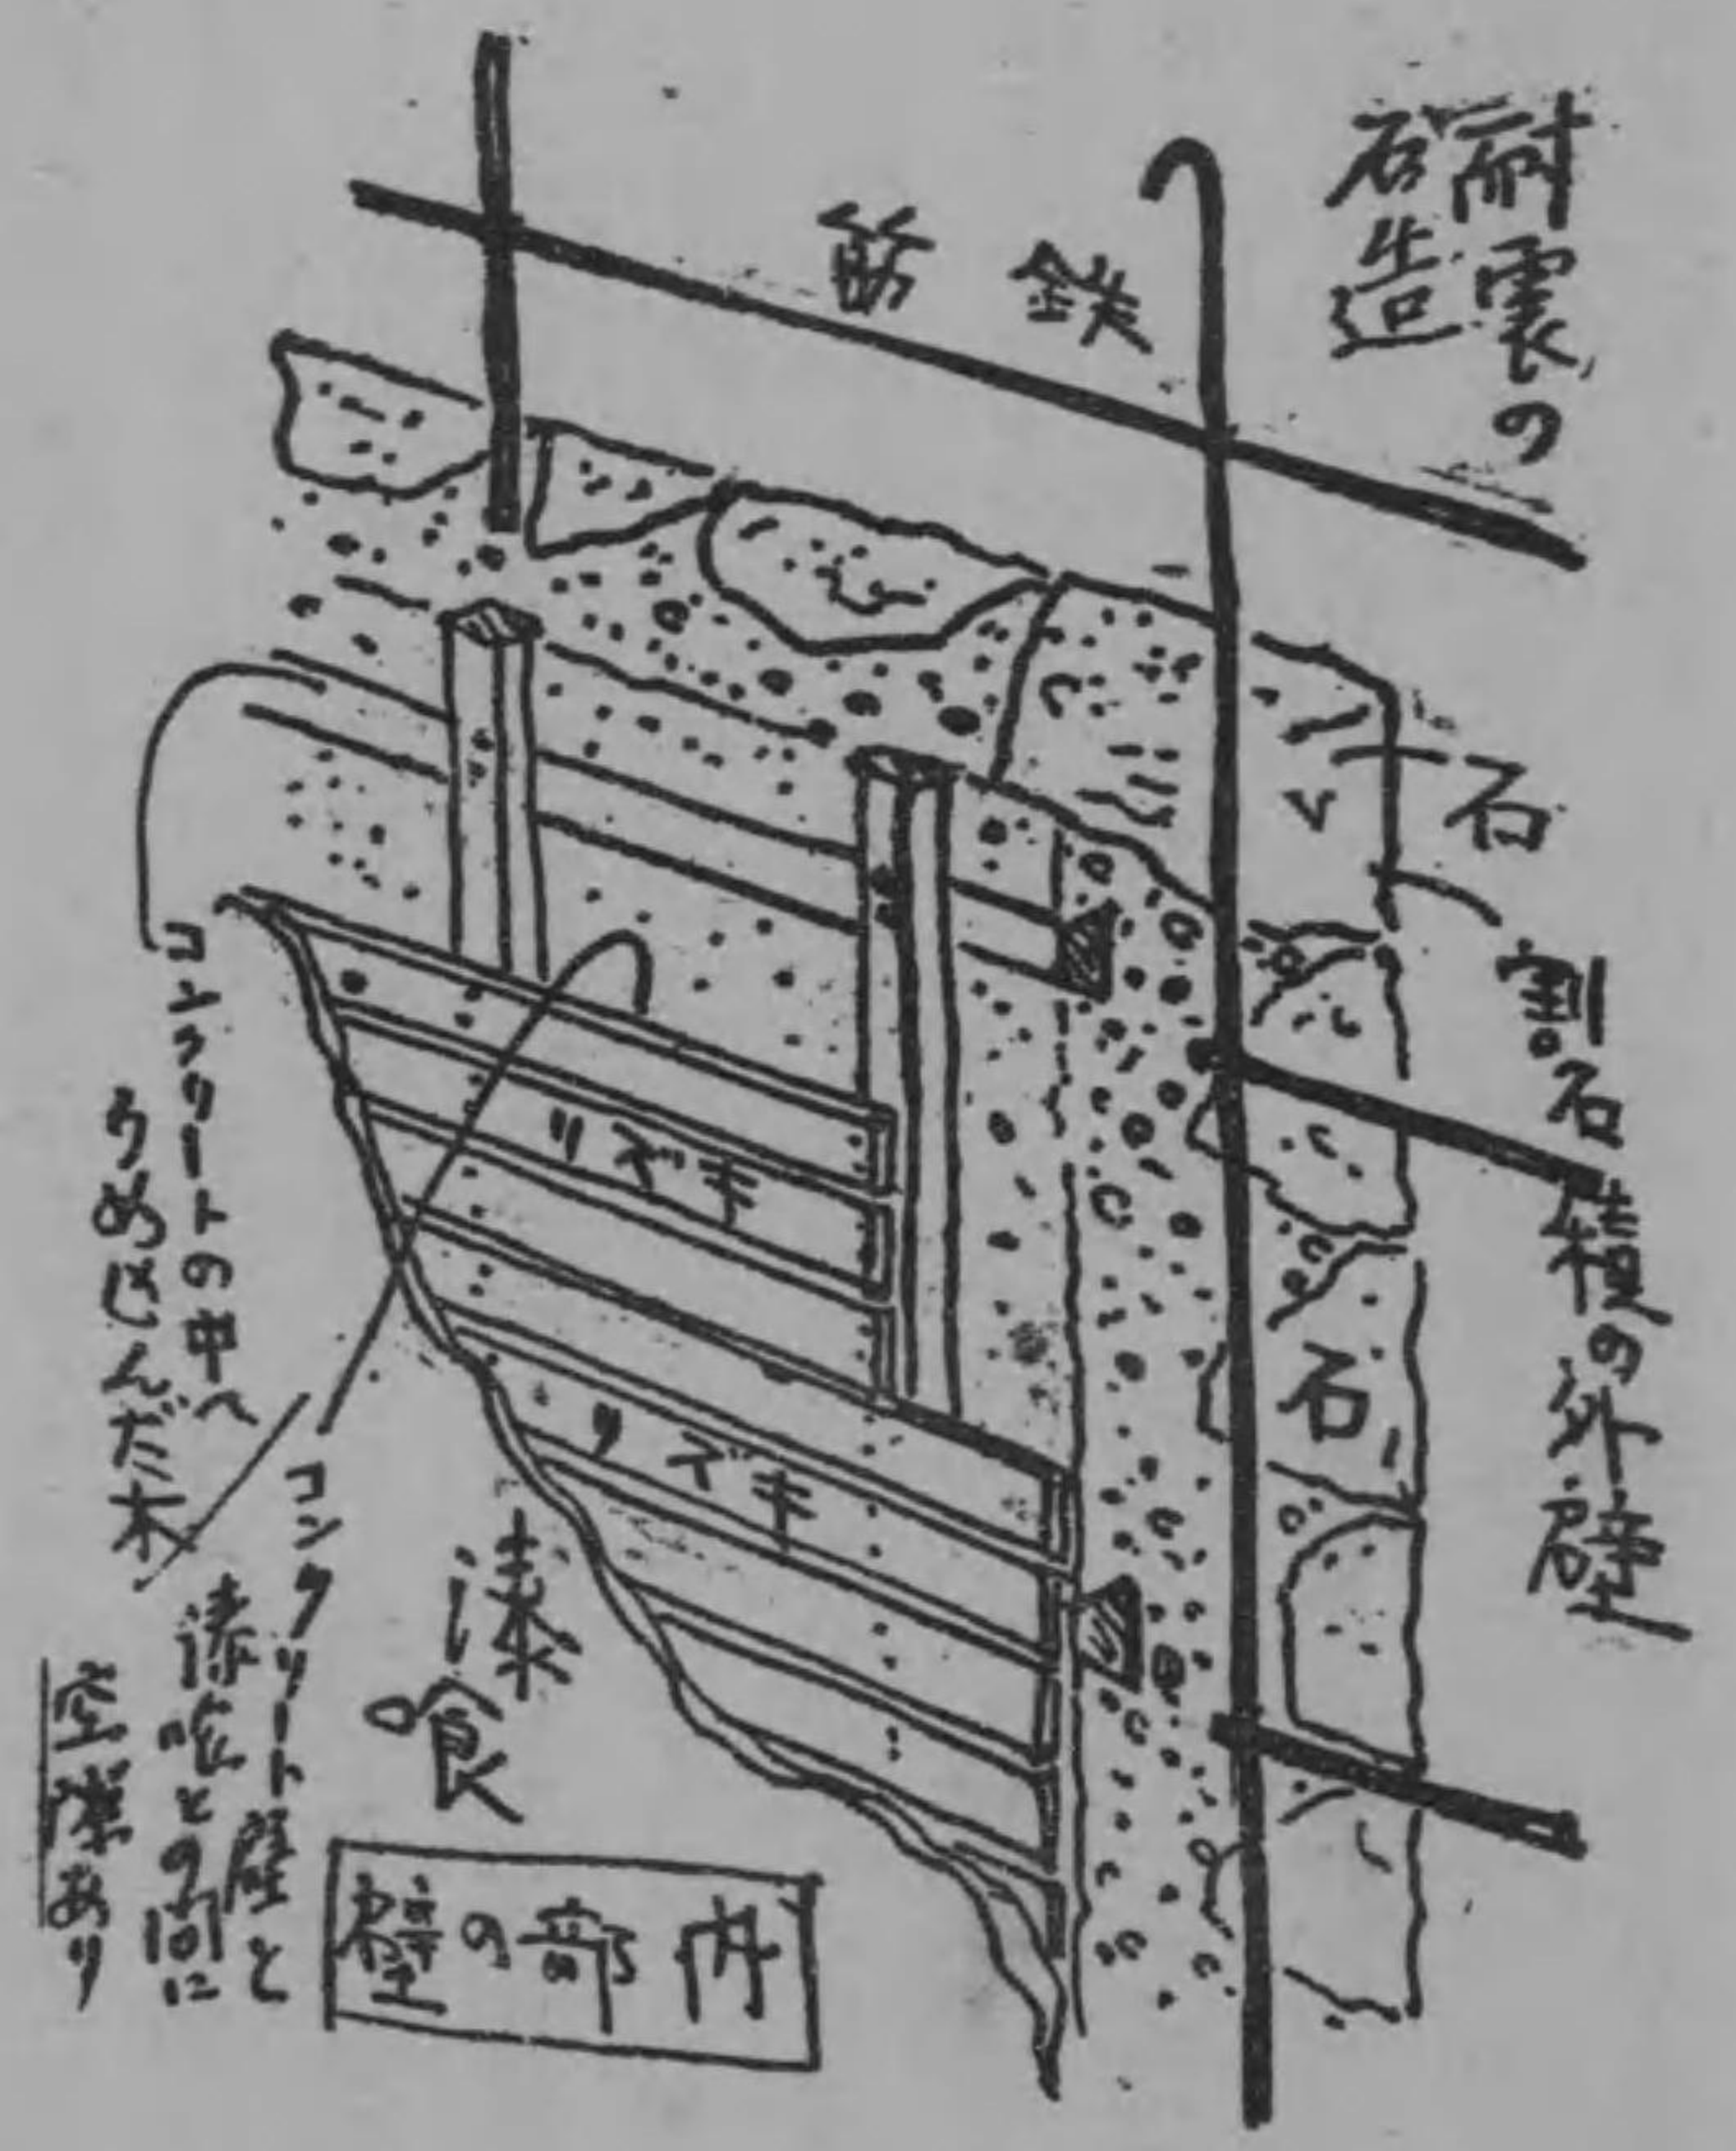 耐震の
石造
鉄筋
石
割石積の外壁
石
キズリ
キズリ
コンクリートの中へ
うめこんだ木
コンクリート壁と
漆喰との間に
空隙あり
漆喰
内部の壁